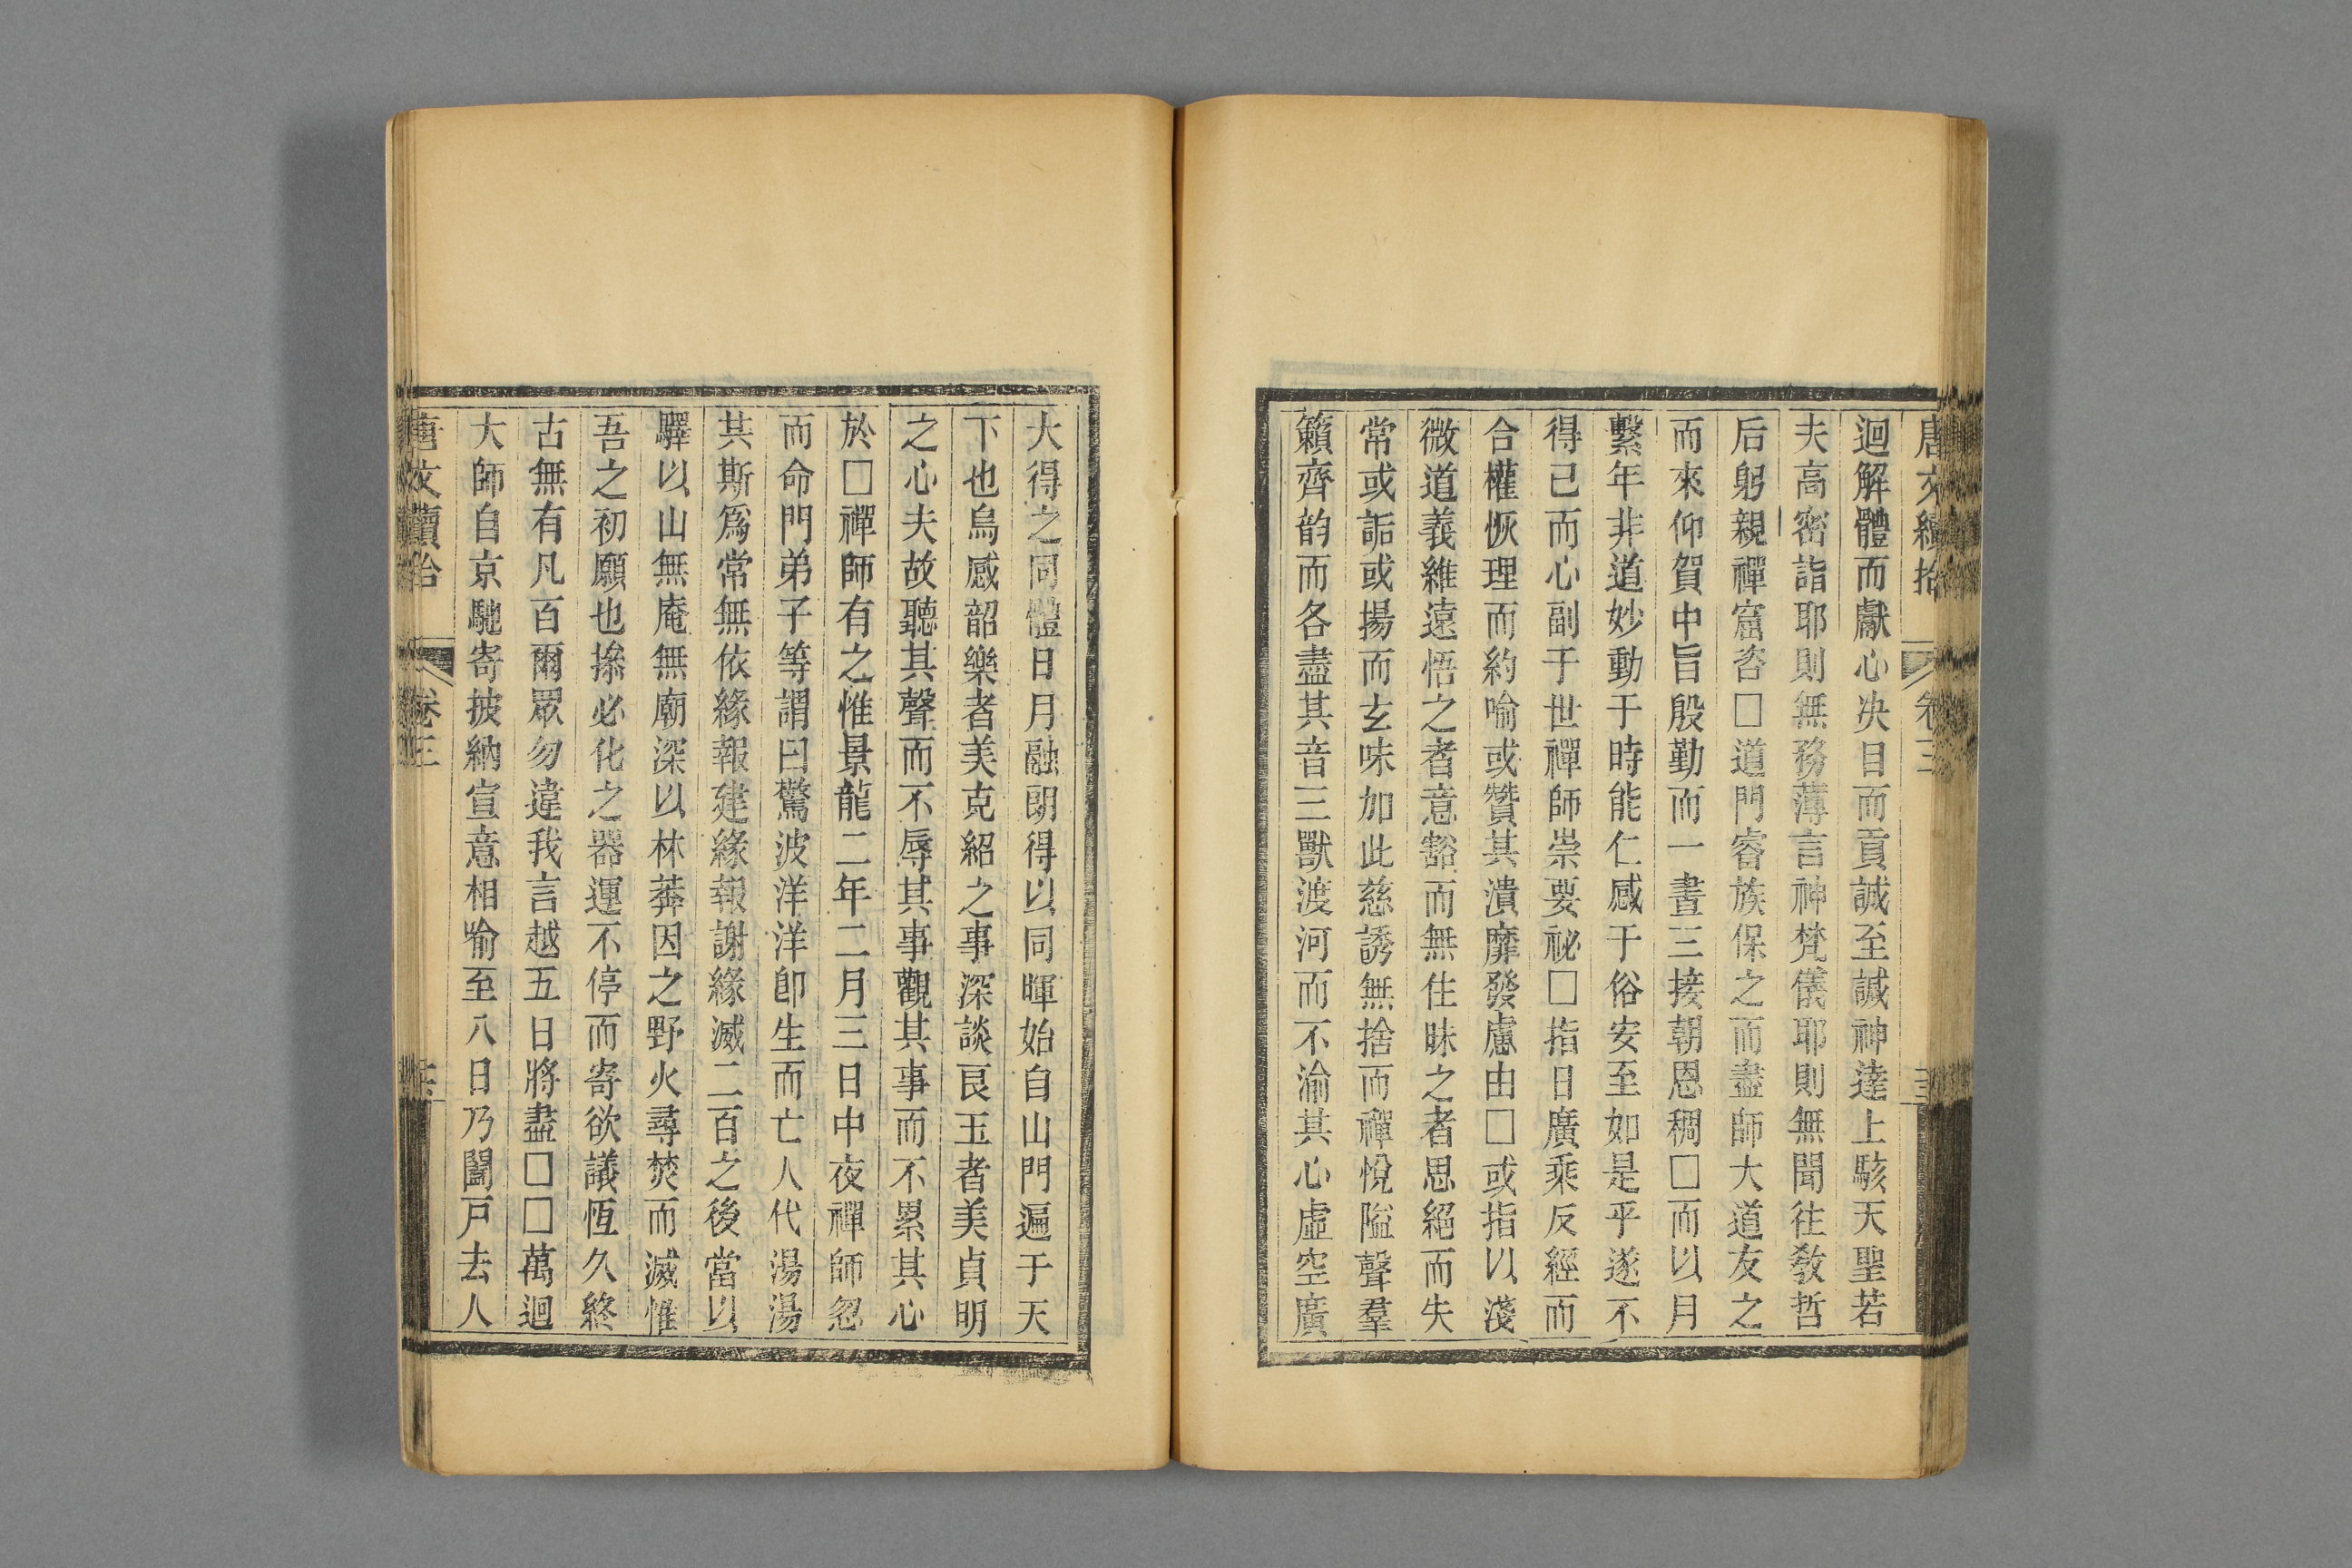 唐文續拾 卷三
迴解體而獻心决日而貢誠至諴神達上駭天聖若
夫高密詣耶則無務薄言神梵儀耶則無聞往敎哲
后躬親禪窟咨□道門睿族保之而盡師大道友之
而來仰賀中旨殷勤而一晝三接朝恩稠□而以月
繫年非道妙動于時能仁感于俗安至如是乎遂不
得已而心副于世禪師崇要祕□指日廣乘反經而
合權恢理而約喻或贊其潰靡發慮由□或指以淺
微道義維遠悟之者意豁而無住昧之者思絕而失
常或詬或揚而玄味加此慈誘無捨而禪悅隘聲羣
籟齊韵而各盡其音三獸渡河而不淪其心虛空廣
大得之同體日月融朗得以同暉始自山門遍于天
下也烏感韶樂者美克紹之事深談良玉者美貞明
之心夫故聽其聲而不辱其事觀其事而不累其心
於□禪師有之惟景龍二年二月三日中夜禪師忽
而命門弟子等謂曰驚波洋洋卽生而亡人代湯湯
其斯爲常無依緣報建緣報謝緣滅二百之後當以
驛以山無庵無廟深以林莽因之野火尋焚而滅惟
吾之初願也摻必化之器運不停而寄欲議恆久終
古無有凡百爾眾勿違我言越五日將盡□□萬迴
大師自京馳寄披納宣意相喻至八日乃闔戸去人
唐文續拾 卷三